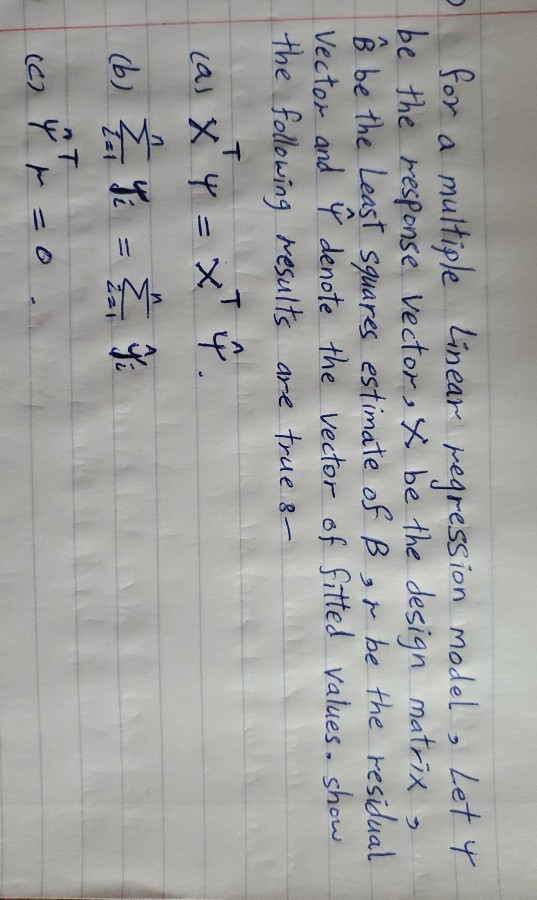 for a multiple Linear regression model, Let Y
be the response vector, X be the design matrix,
β̂ be the Least squares estimate of β, r be the residual
vector and Ŷ denote the vector of fitted values. show
the following results are true :-
(a) Xᵀ Y = Xᵀ Ŷ.
(b) ∑ⁿᵢ₌₁ yᵢ = ∑ⁿᵢ₌₁ ŷᵢ
(c) Ŷᵀ r = 0.